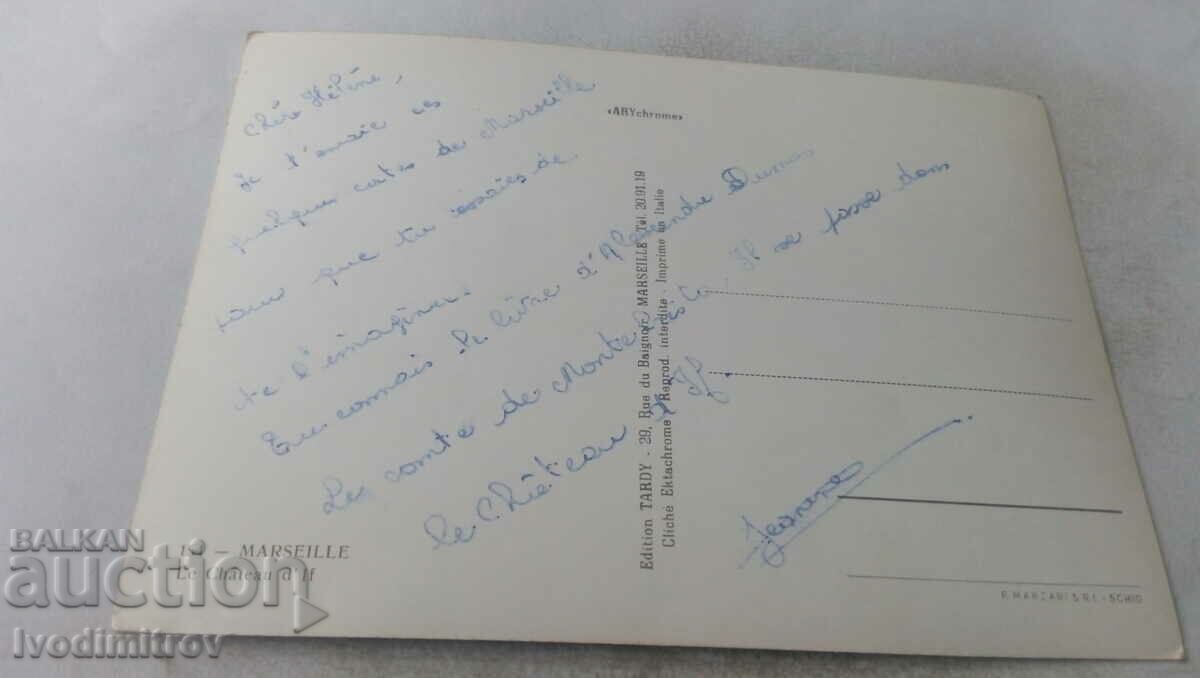 Chère Hélène,
Je t'envoie ces
quelques cartes de Marseille
pour que tu essaies de
te l'imaginer.
Tu connais le livre d'Alexandre Dumas
Le comte de Monte Cristo. Il se passe dans
le Château d'If.
Jeanine
«ARYchrome»
Edition TARDY - 29, Rue du Baignoir MARSEILLE Tél. 20.91.19
Cliché Ektachrome - Reprod. interdite - Imprimé en Italie
— MARSEILLE
Le Château d'If
P. MARZARI S.R.L. - SCHIO
BALKAN
auction
Ivodimitrov